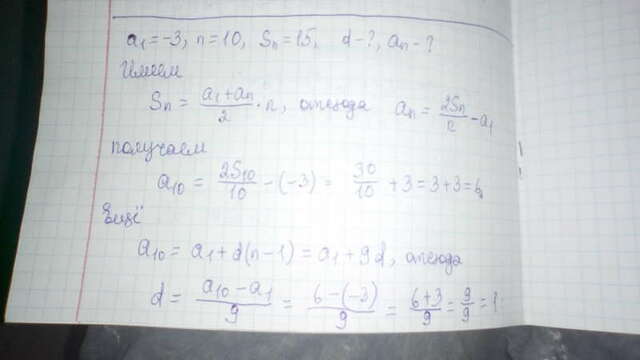 a₁ = -3, n = 10, Sₙ = 15, d - ?, aₙ - ?
Имеем
Sₙ = (a₁ + aₙ)/2 · n, отсюда aₙ = 2Sₙ/n - a₁
получаем
a₁₀ = 2S₁₀/10 - (-3) = 30/10 + 3 = 3 + 3 = 6,
Ещё
a₁₀ = a₁ + d(n - 1) = a₁ + 9d, отсюда
d = (a₁₀ - a₁)/9 = (6 - (-3))/9 = (6 + 3)/9 = 9/9 = 1.